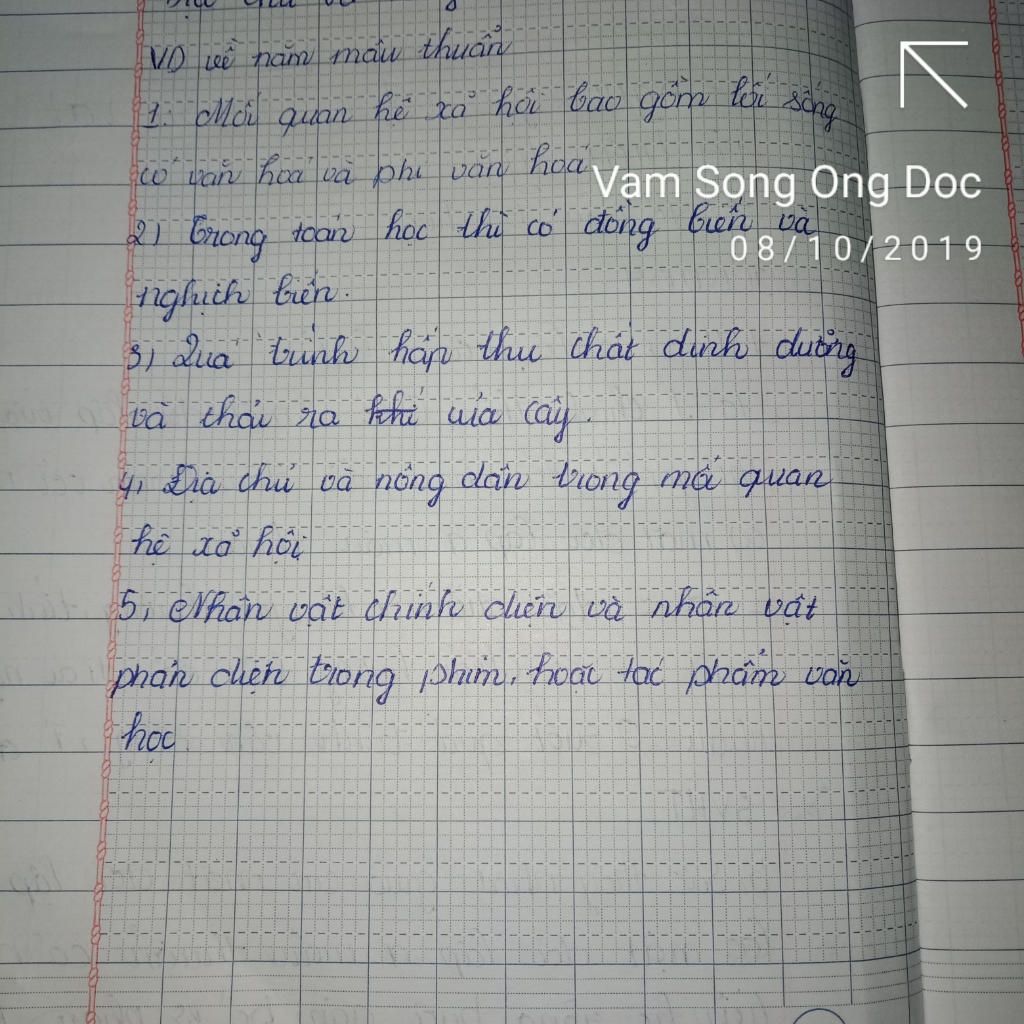 VD về năm mâu thuẩn
1. Mối quan hệ xả hội bao gồm lối sống
có văn hoá và phi văn hoá
Vam Song Ong Doc
2) Trong toán học thì có đồng biến và
08/10/2019
nghịch biến.
3) Quá trình hấp thụ chất dinh dưỡng
và thải ra khí của cây.
4, Địa chủ và nông dân trong mối quan
hệ xả hội
5, Nhân vật chính diện và nhân vật
phản diện trong phim, hoặc tác phẩm văn
học.